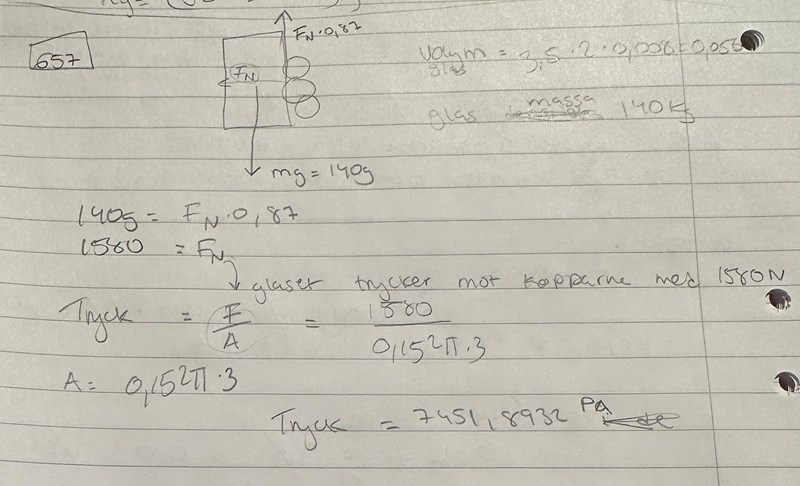 657
F_N · 0,87
F_N
mg = 140g
Volym glas = 3,5 · 2 · 0,008 = 0,056
glas massa 140kg
140g = F_N · 0,87
1580 = F_N
↳ glaset trycker mot kopparne med 1580N
Tryck = F/A = 1580/0,15²π·3
A = 0,15²π·3
Tryck = 7451,8932 Pa